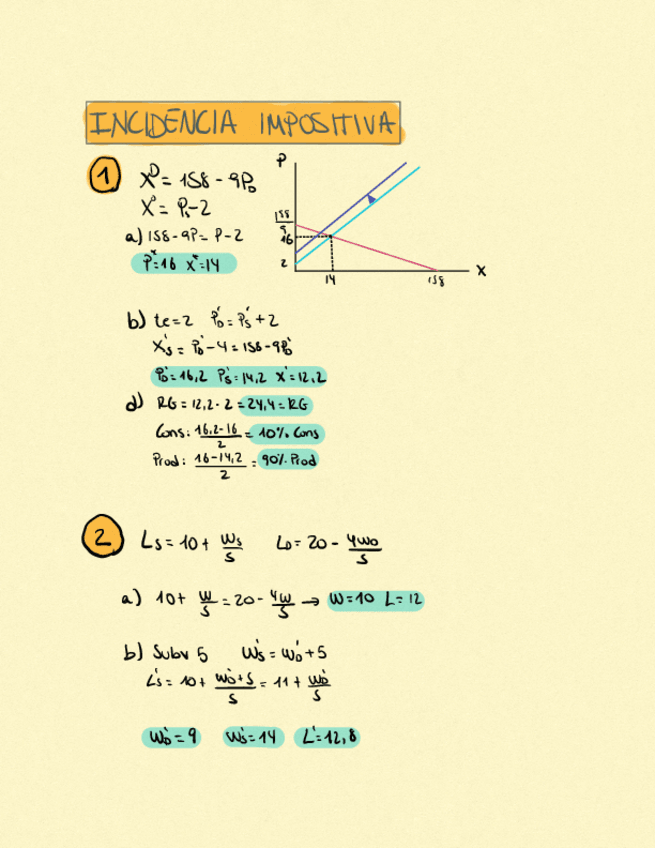 INCIDENCIA IMPOSITIVA
1
X^D = 158 - 9P_D
X^S = P_S - 2
P
158/9
16
2
14
158
X
a) 158 - 9P = P - 2
P* = 16 X* = 14
b) te = 2 P_D' = P_S' + 2
X_S' = P_D' - 4 = 158 - 9P_D'
P_D' = 16,2 P_S' = 14,2 X' = 12,2
d) RG = 12,2 · 2 = 24,4 = RG
Cons: 16,2 - 16 / 2 = 10% Cons
Prod: 16 - 14,2 / 2 = 90% Prod
2
L_S = 10 + W_S/5 L_D = 20 - 4W_D/5
a) 10 + W/5 = 20 - 4W/5 → W = 10 L = 12
b) Subv 5 W_S' = W_D' + 5
L_S' = 10 + W_D' + 5 / 5 = 11 + W_D'/5
W_D' = 9 W_S' = 14 L' = 12,8